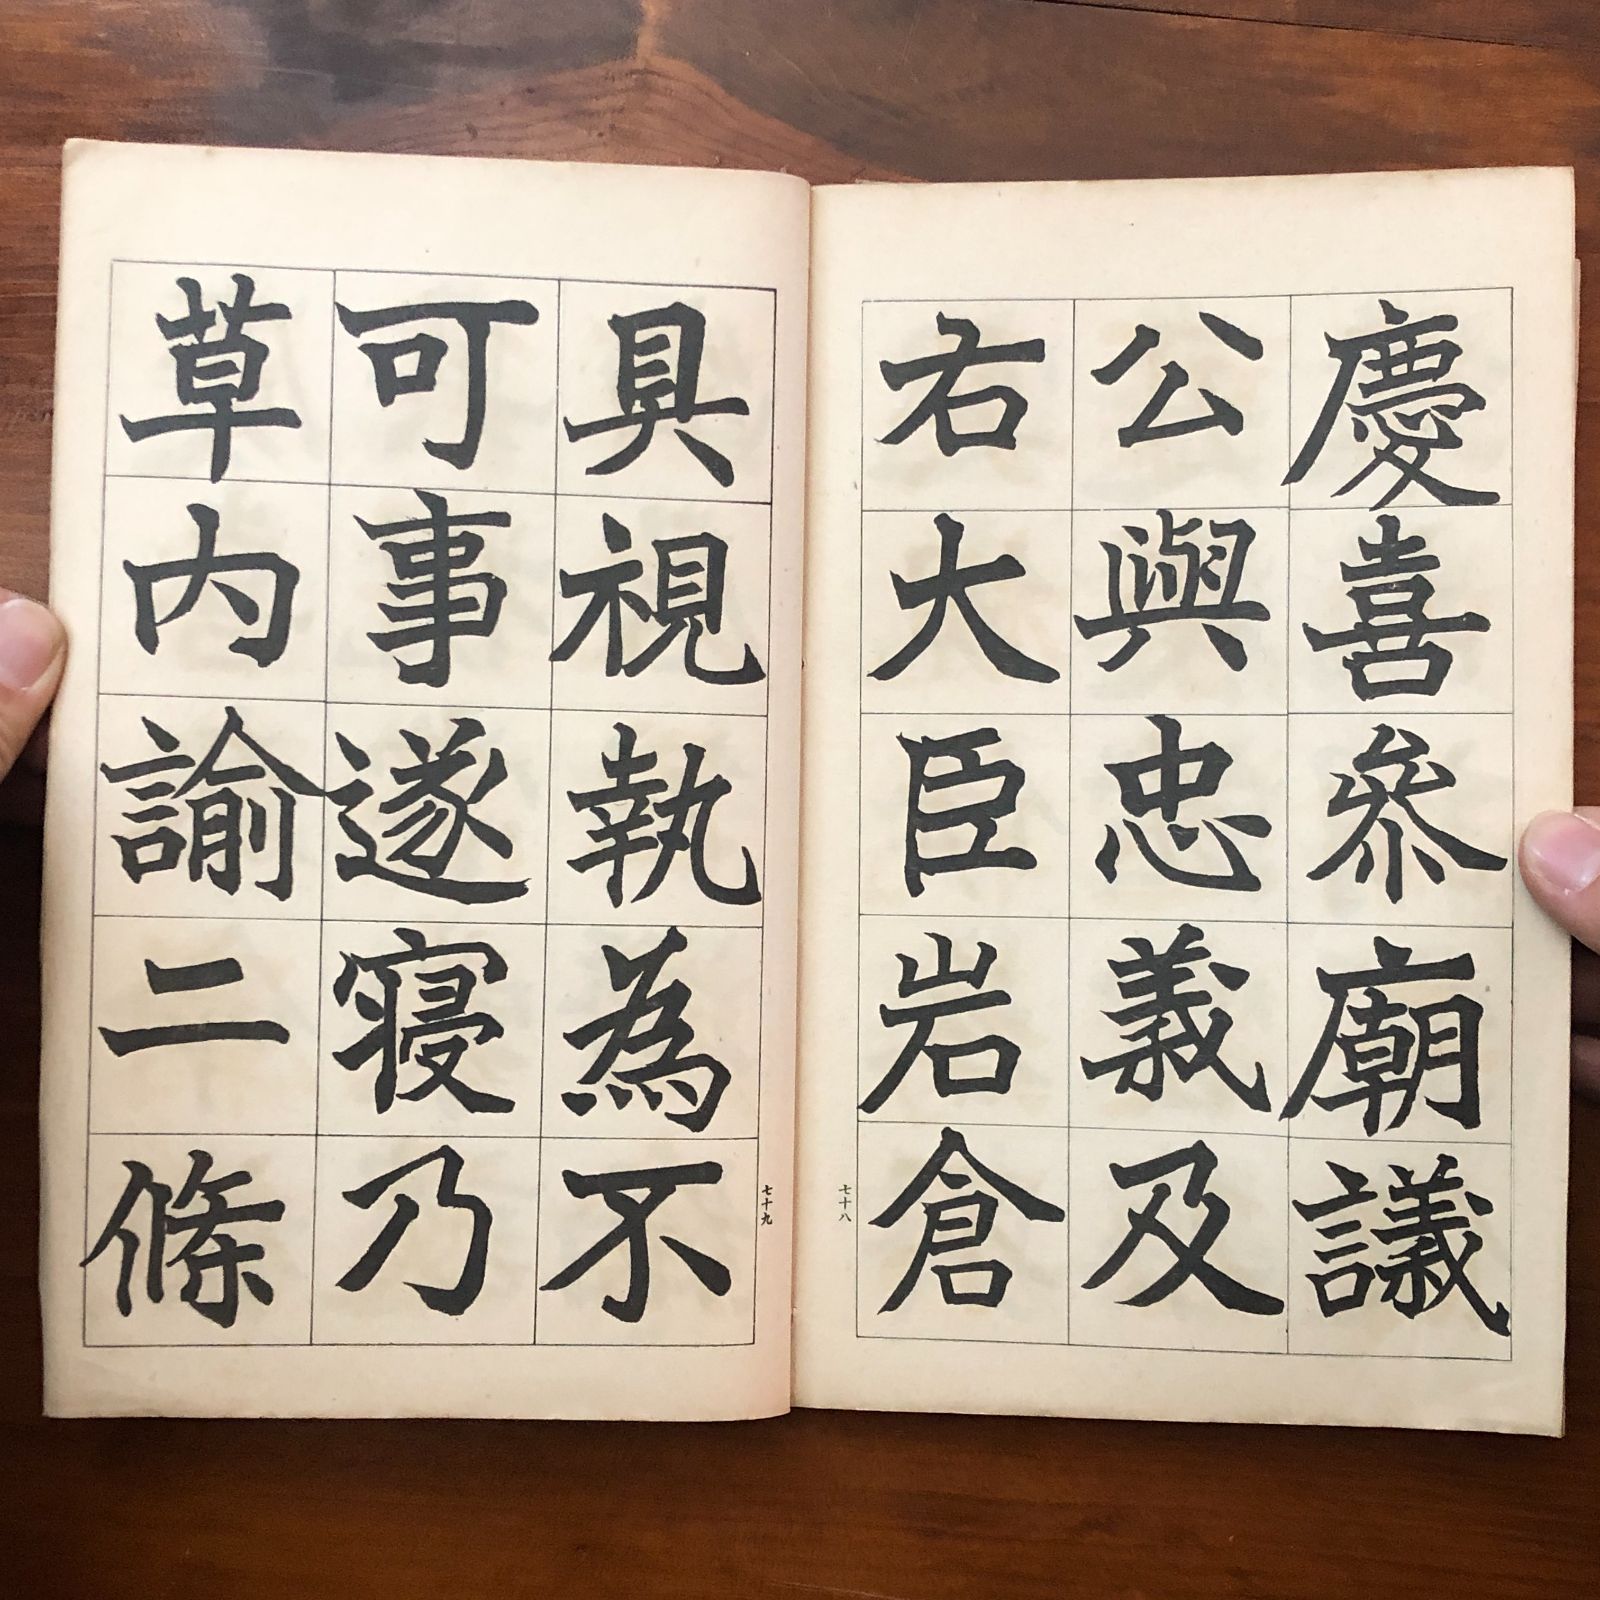 慶喜参廟議
公與忠義及
右大臣岩倉
七十八
具視執為不
可事遂寝乃
草内諭二條
七十九